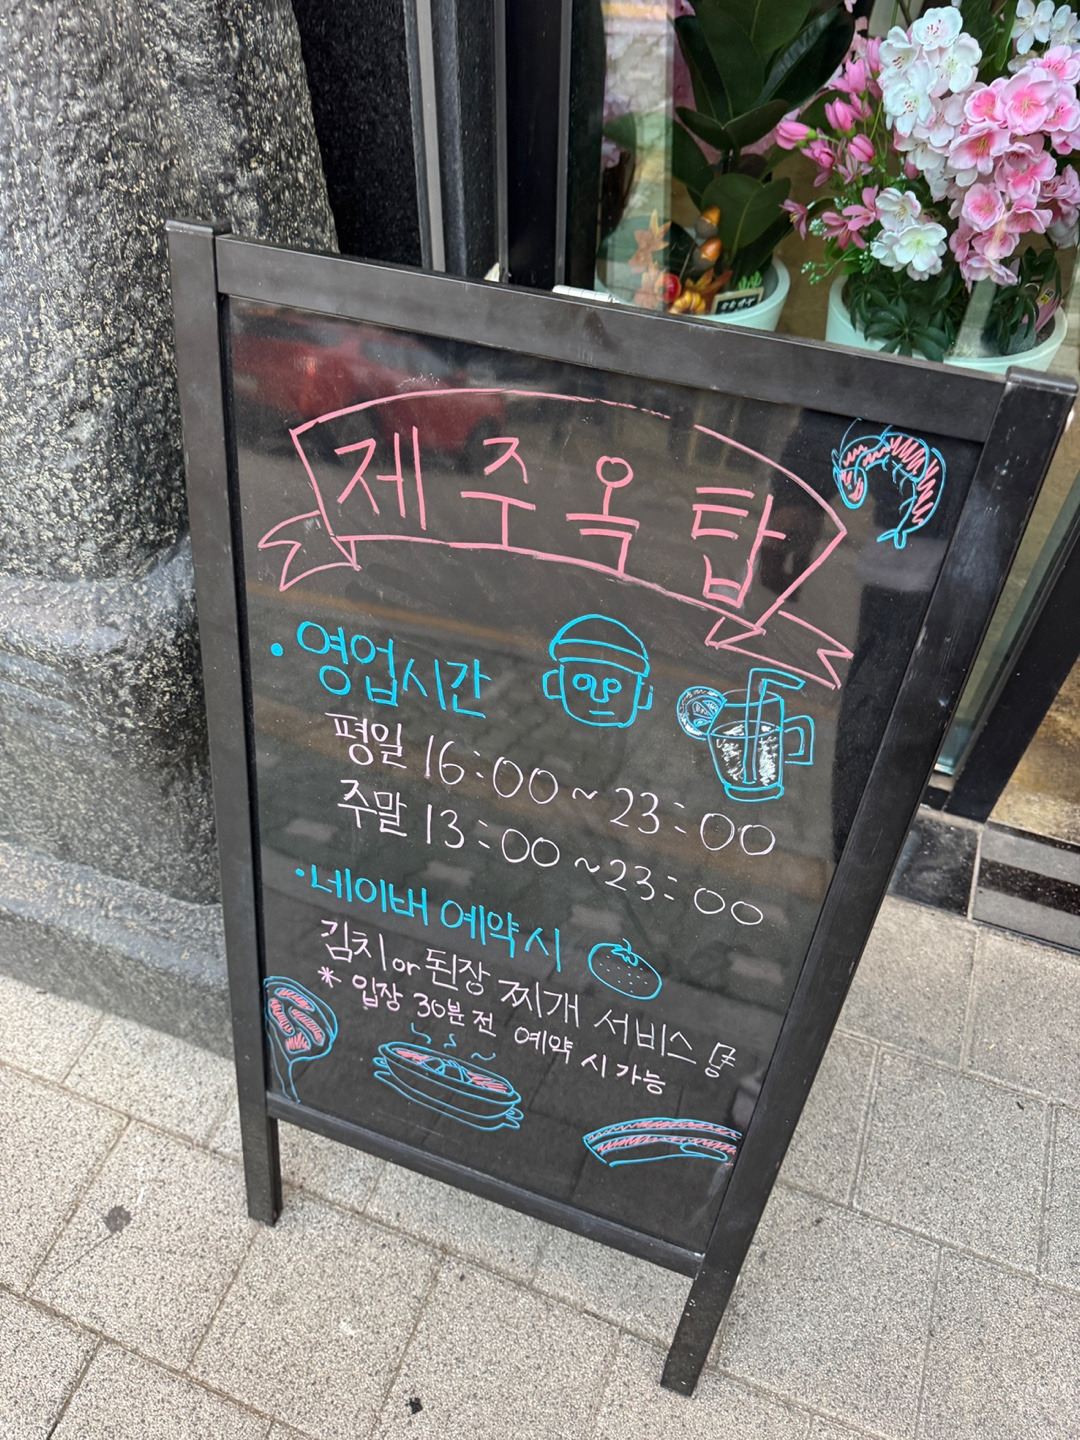 제주옥탑
• 영업시간
평일 16:00 ~ 23:00
주말 13:00 ~ 23:00
• 네이버 예약 시
김치 or 된장 찌개 서비스
* 입장 30분 전 예약 시 가능